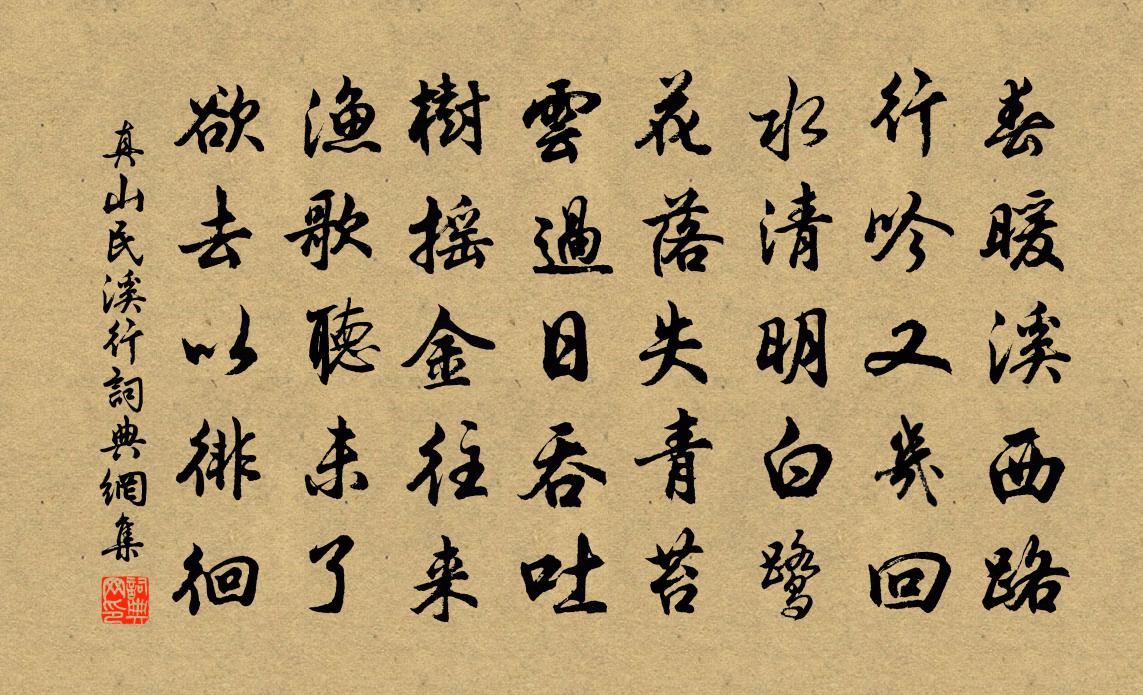 春暖溪西路
行吟又幾回
水清明白鷺
花落失青苔
雲過日吞吐
樹搖金往来
漁歌聽未了
欲去以徘徊
真山民溪行詞典網集
詞典网印